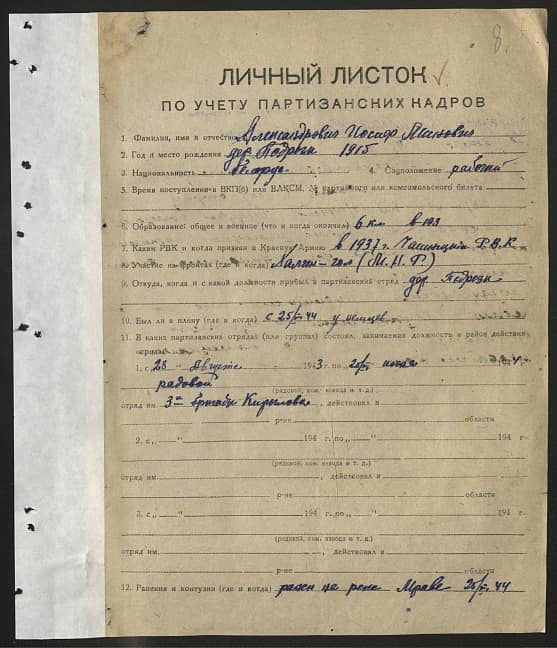 8.
ЛИЧНЫЙ ЛИСТОК
ПО УЧЕТУ ПАРТИЗАНСКИХ КАДРОВ
1. Фамилия, имя и отчество Александрович Иосиф
2. Год и место рождения дер. 1915
3. Национальность 4. Соцположение рабочий
5. Время поступления в ВКП(б) или ВЛКСМ, № партийного или комсомольского билета
6. Образование: общее и военное (что и когда окончил) 6 кл
7. Каким РВК и когда призван в Красную Армию в 1937 г. Р.В.К.
8. Участие на фронтах (где и когда) Халхин-гол (М.Н.Р.)
9. Откуда, когда и с какой должности прибыл в партизанский отряд дер.
10. Был ли в плену (где и когда) с 44 у немцев
11. В каких партизанских отрядах (или группах) состоял, занимаемая должность и район действия
отряда:
1. с 28 " Августа 1943 г. по
рядовой
(рядовой, ком. взвода и т. д.)
отряд им. 3й бригады Кирылова, действовал в
р-не области
2. с „ “ 194 г. по „ “ 194 г.
(рядовой, ком. взвода и т. д.)
отряд им. , действовал в
р-не области
3. с „ “ 194 г. по „ “ 194 г.
(рядовой, ком. взвода и т. д.)
отряд им. , действовал в
р-не области
12. Ранения и контузии (где и когда) ранен на реке 44